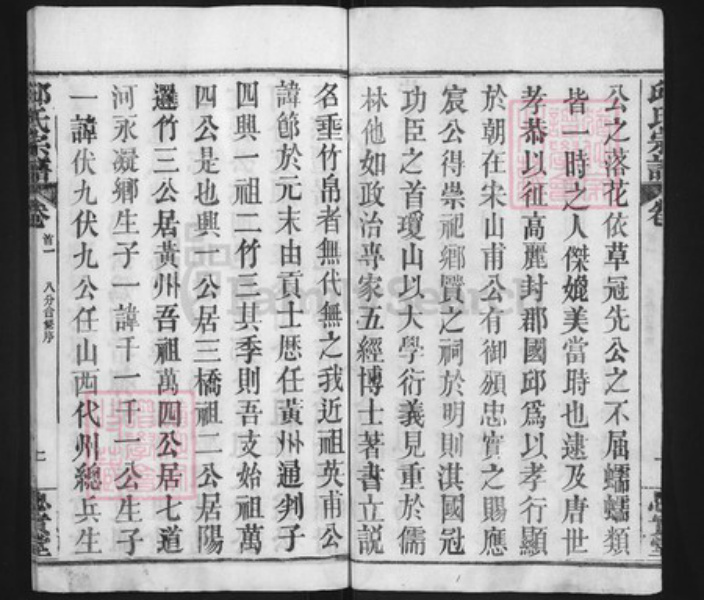 邱氏宗譜 卷
公之落花依草冠先公之不届蠕蠕類
皆一時之人傑媲美當時也逮及唐世
孝恭以征高麗封郡國邱為以孝行顯
於朝在宋山甫公有御頒忠實之賜應
宸公得崇祀鄉賢之祠於明則淇國冠
功臣之首瓊山以大學衍義見重於儒
林他如政治專家五經博士著書立説
名垂竹帛者無代無之我近祖英甫公
諱節於元末由貢士歷任黃州通判子
四興一祖二竹三其季則吾支始祖萬
四公是也興一公居三橋祖二公居陽
邏竹三公居黃州吾祖萬四公居七道
河永凝鄉生子一諱千一千一公生子
一諱伏九伏九公任山西代州總兵生
邱氏宗譜 卷首一 八分合修序 上 忠實堂
FamilySearch